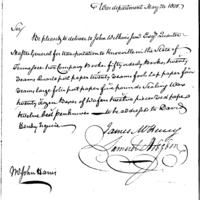 War department May 20 1800.
Sir
Please to deliver to John Wilkins jun. Esqr. Quarter
Master General for transportation to Knoxville in the State of
Tennessee two Company Books fifty orderly Books, twenty
Reams post paper twenty Reams fools Cap paper five
Reams large folio post paper five pounds Sealing Wax
twenty dozen Boxes of Wafers twelve pieces red tape
twelve best penknives — to be addressed to David
Henley Esquire
James McHenry
Samuel Hodgdon
Mr. John Harris